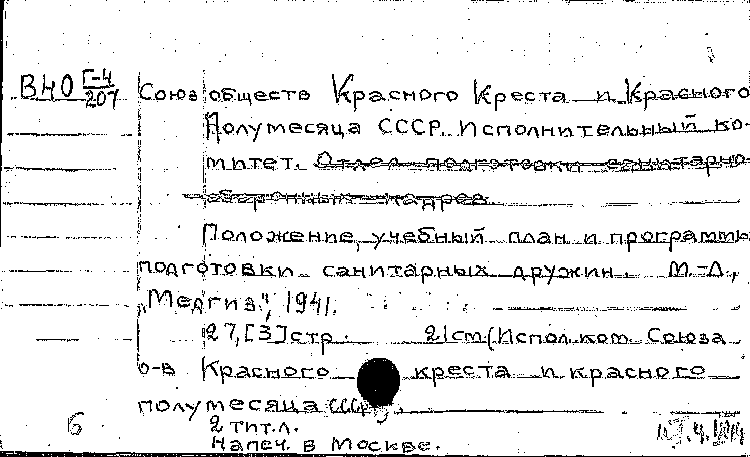 ВНО Г-4/207 Союз обществ Красного Креста и Красного
Полумесяца СССР. Исполнительный ко-
митет. Отдел подготовки санитарно-
оборонных кадров
Положение, учебный план и программы
подготовки санитарных дружин. М.-Л.,
„Медгиз", 1941.
27,[3]стр. 21cm (Испол.ком. Союза
о-в Красного креста и красного
полумесяца СССР).
2 тит.л.
Напеч. в Москве.
Б